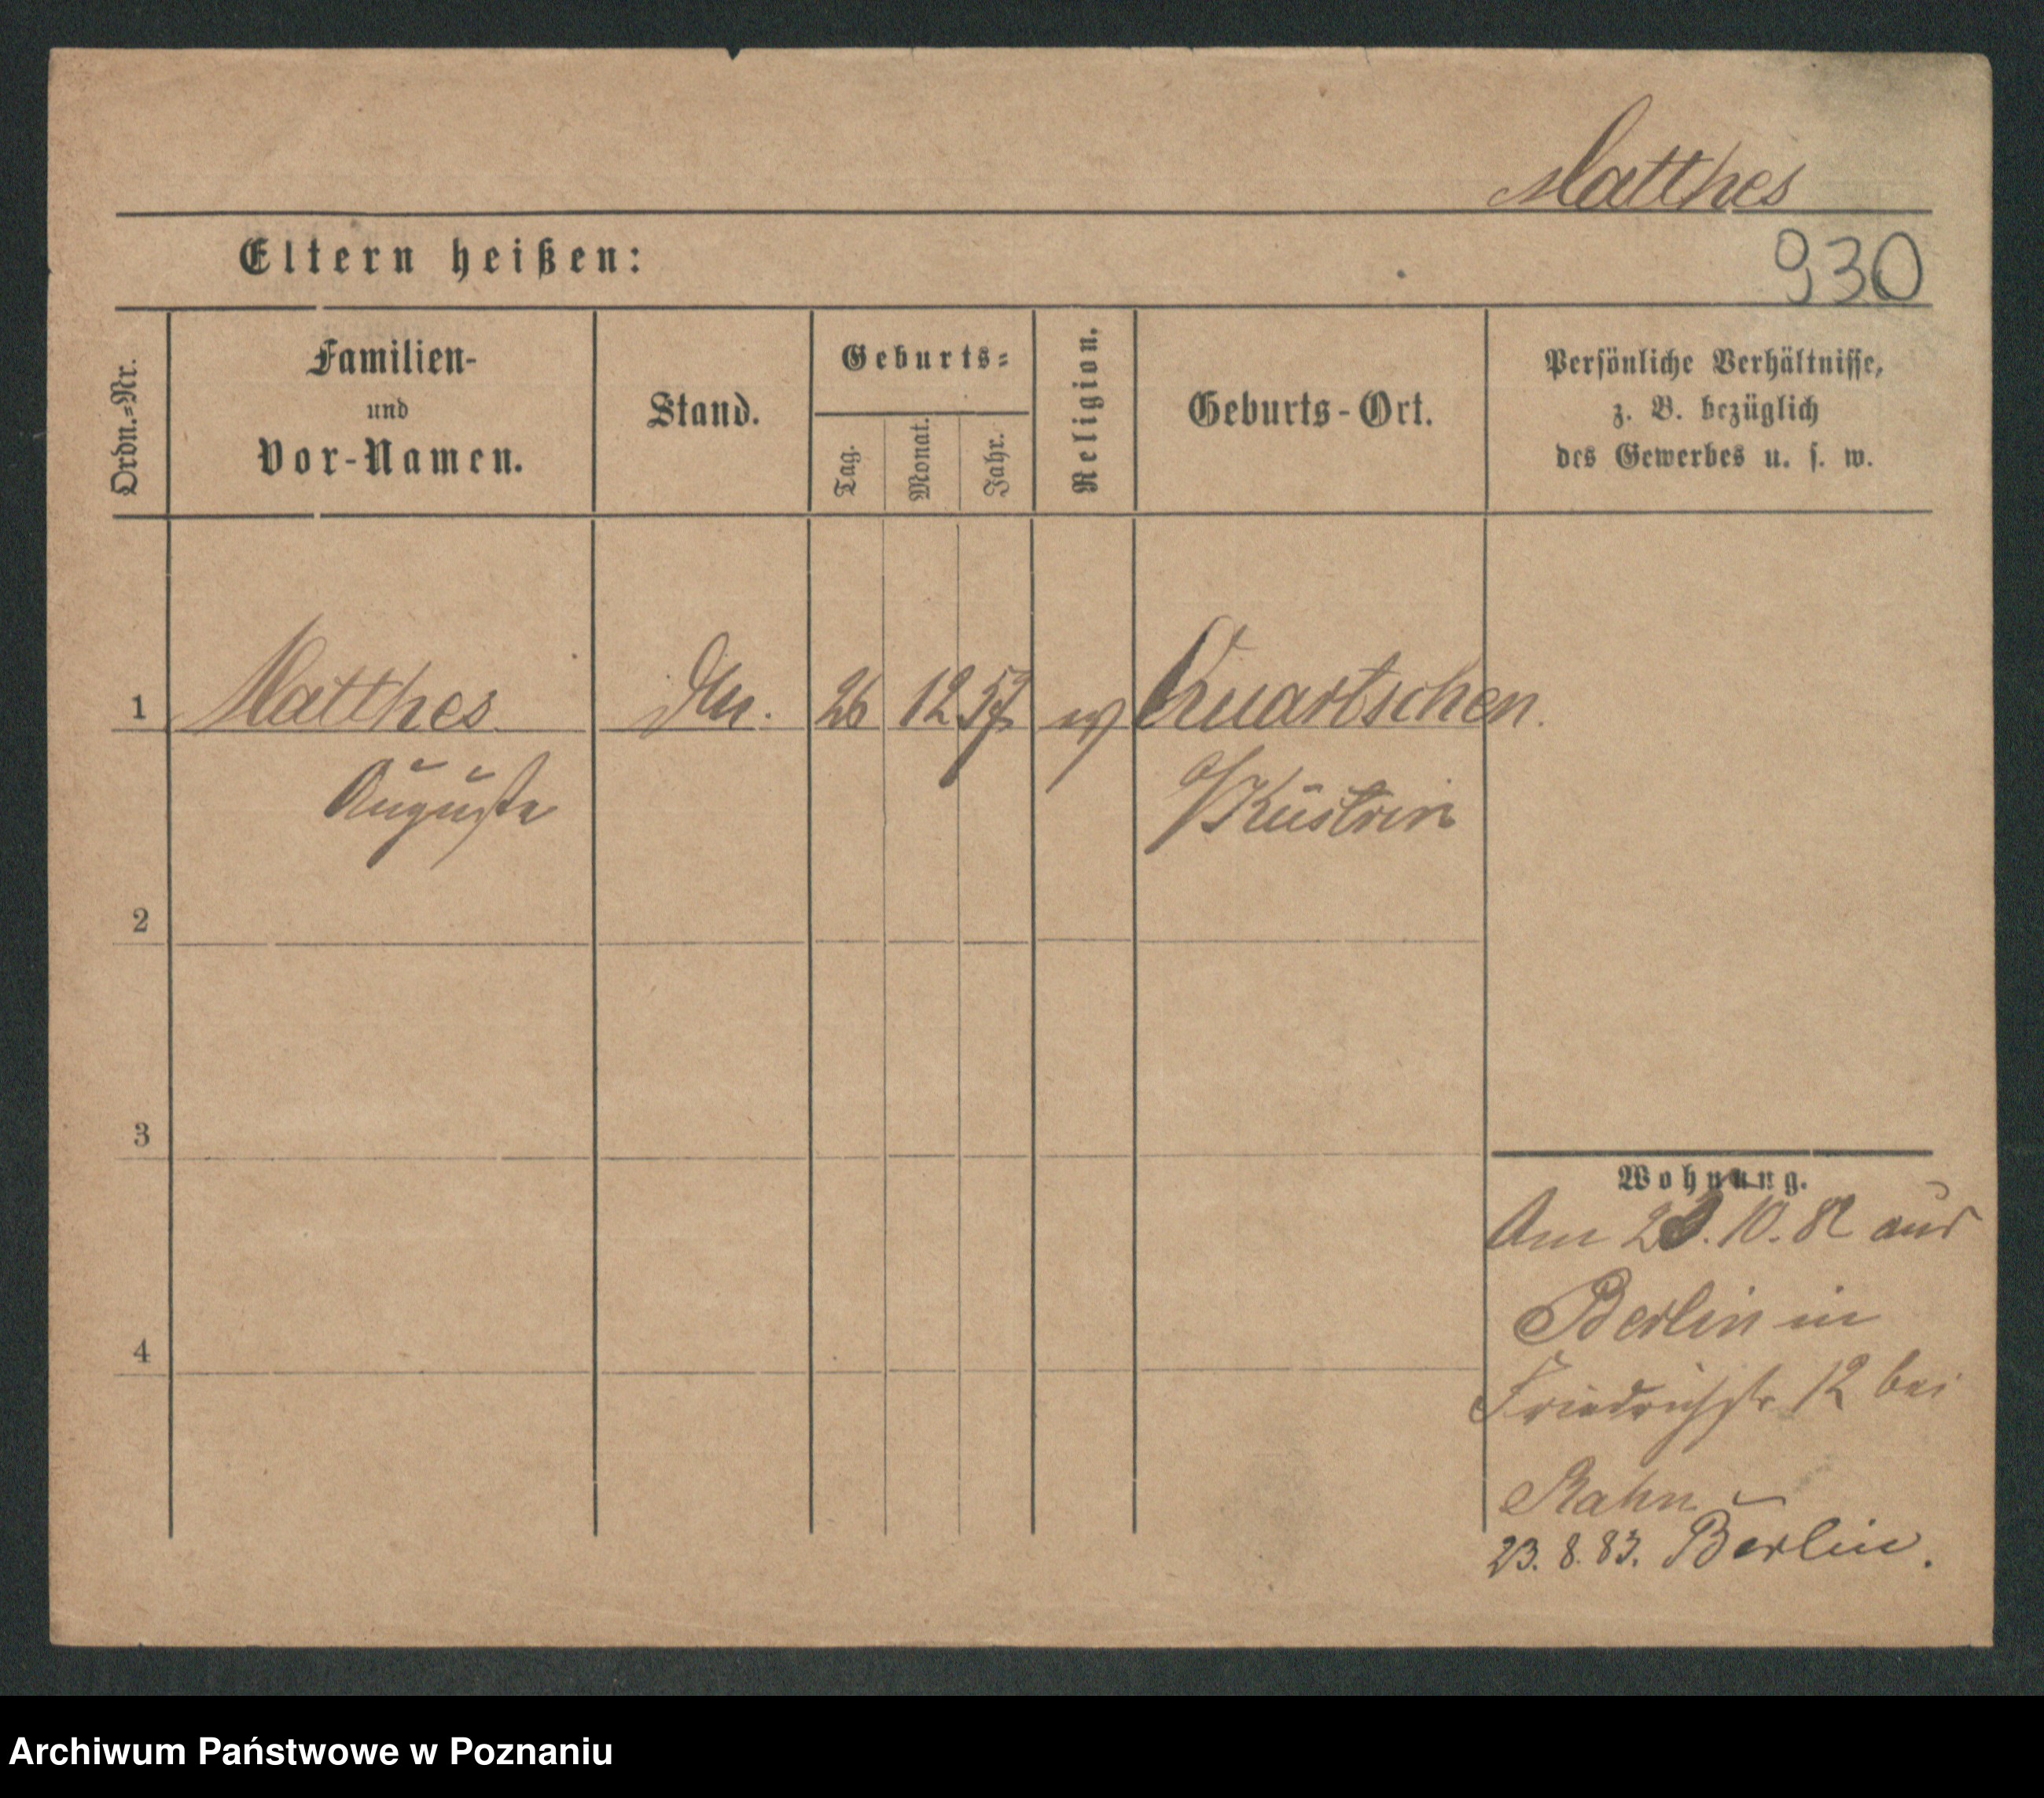 Matthes
Eltern heißen:
930
Ordn.-Nr.
Familien-
und
Vor-Namen.
Stand.
Geburts-
Tag.
Monat.
Jahr.
Religion.
Geburts-Ort.
Persönliche Verhältnisse,
z. B. bezüglich
des Gewerbes u. s. w.
1 Matthes 26 12 57 ev Quartschen.
Auguste Küstrin
2
3
4
Wohnung.
Am 10. 82 aus
Berlin in
Friedrichstr 12 bei
Rahn
23. 8. 83. Berlin.
Archiwum Państwowe w Poznaniu